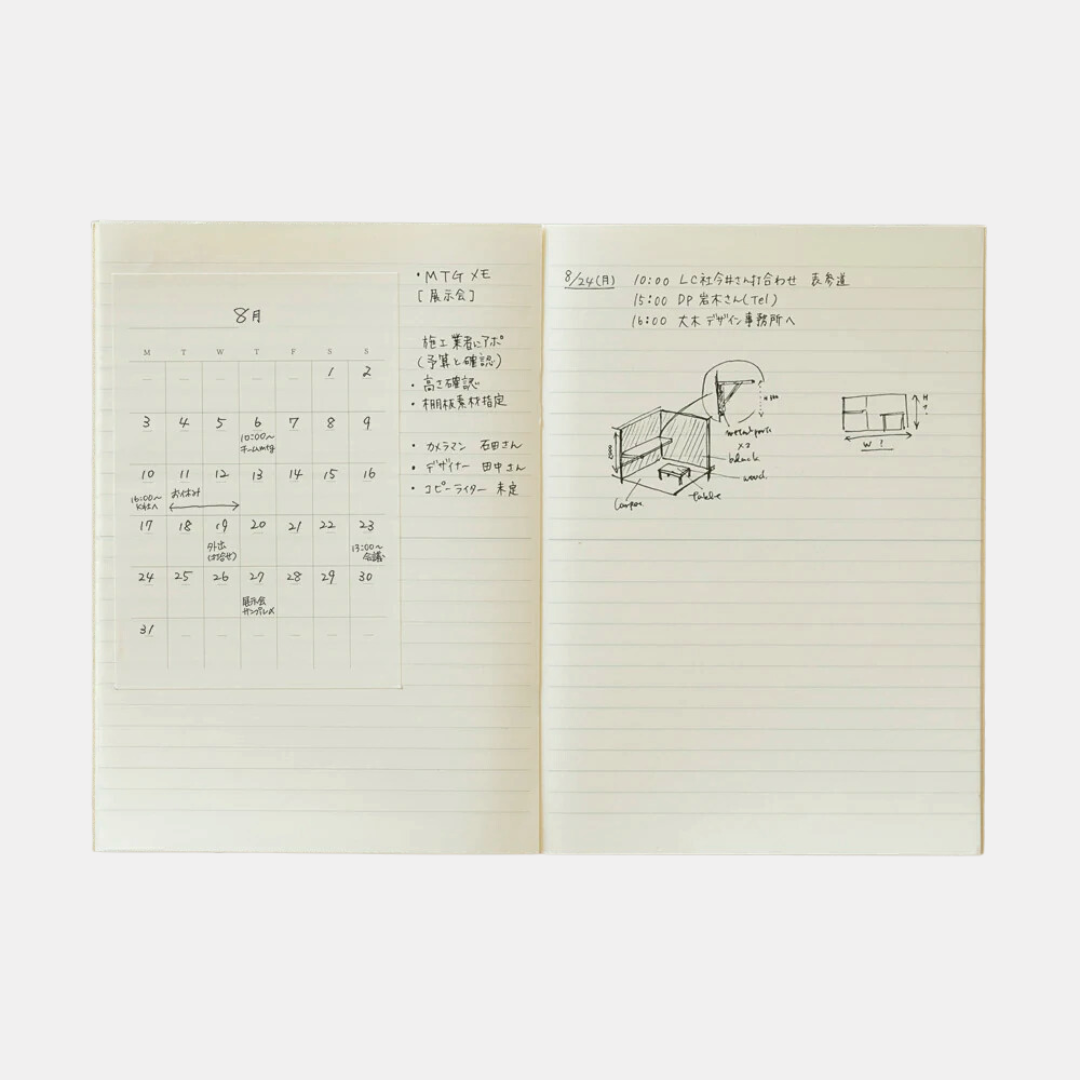 8月
M T W T F S S
1 2
3 4 5 6 7 8 9
10:00〜
チームmtg
10 11 12 13 14 15 16
16:00〜
お休み
17 18 19 20 21 22 23
外出
(打合せ)
13:00〜
会議
24 25 26 27 28 29 30
展示会
サンプル〆
31
・MTGメモ
[展示会]
施工業者にアポ
(予算と確認)
・高さ確認
・棚板素材指定
・カメラマン 石田さん
・デザイナー 田中さん
・コピーライター 未定
8/24(月) 10:00 LC社今井さん打合わせ 表参道
15:00 DP岩木さん(Tel)
16:00 大木デザイン事務所へ
metal parts
×2
black
wood
table
H?
W?